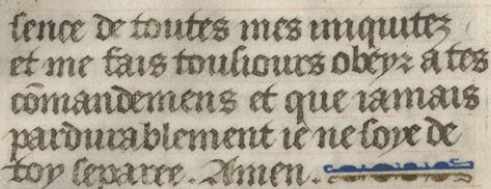 sence de toutes mes iniquitez
et me fais tousiours obeyr a tes
cōmandemens et que iamais
pardurablement ie ne soye de
toy separee. Amen.